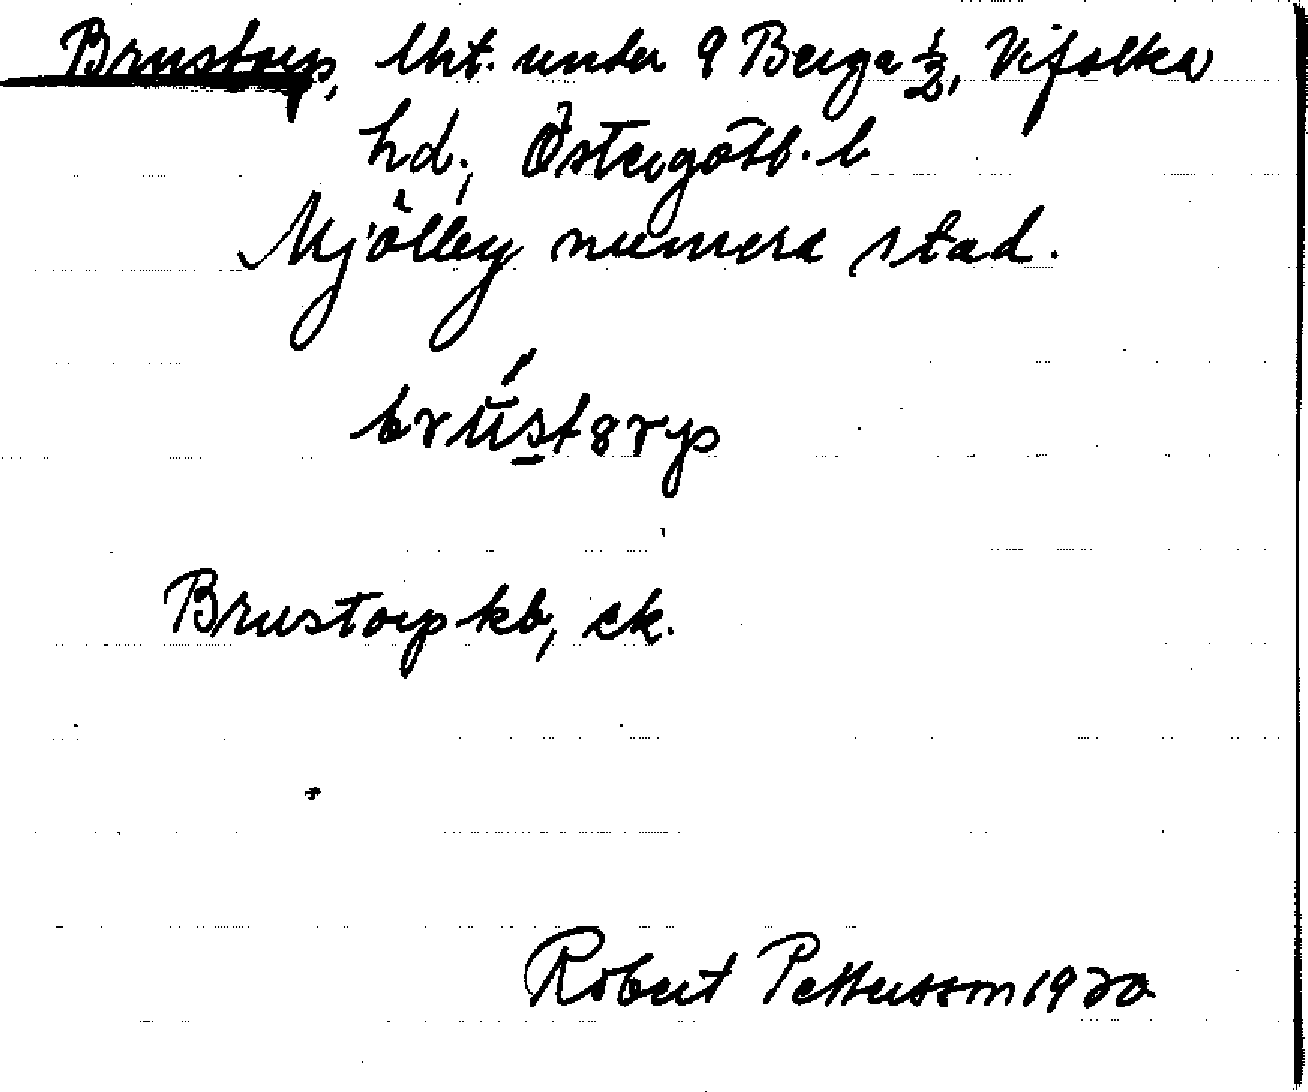 Brustorp, lht. under 9 Berga ½, Vifolka
hd., Östergötl. l
Mjölby numera stad.
Brustorp kb, ck.
Robert Pettersson 1920